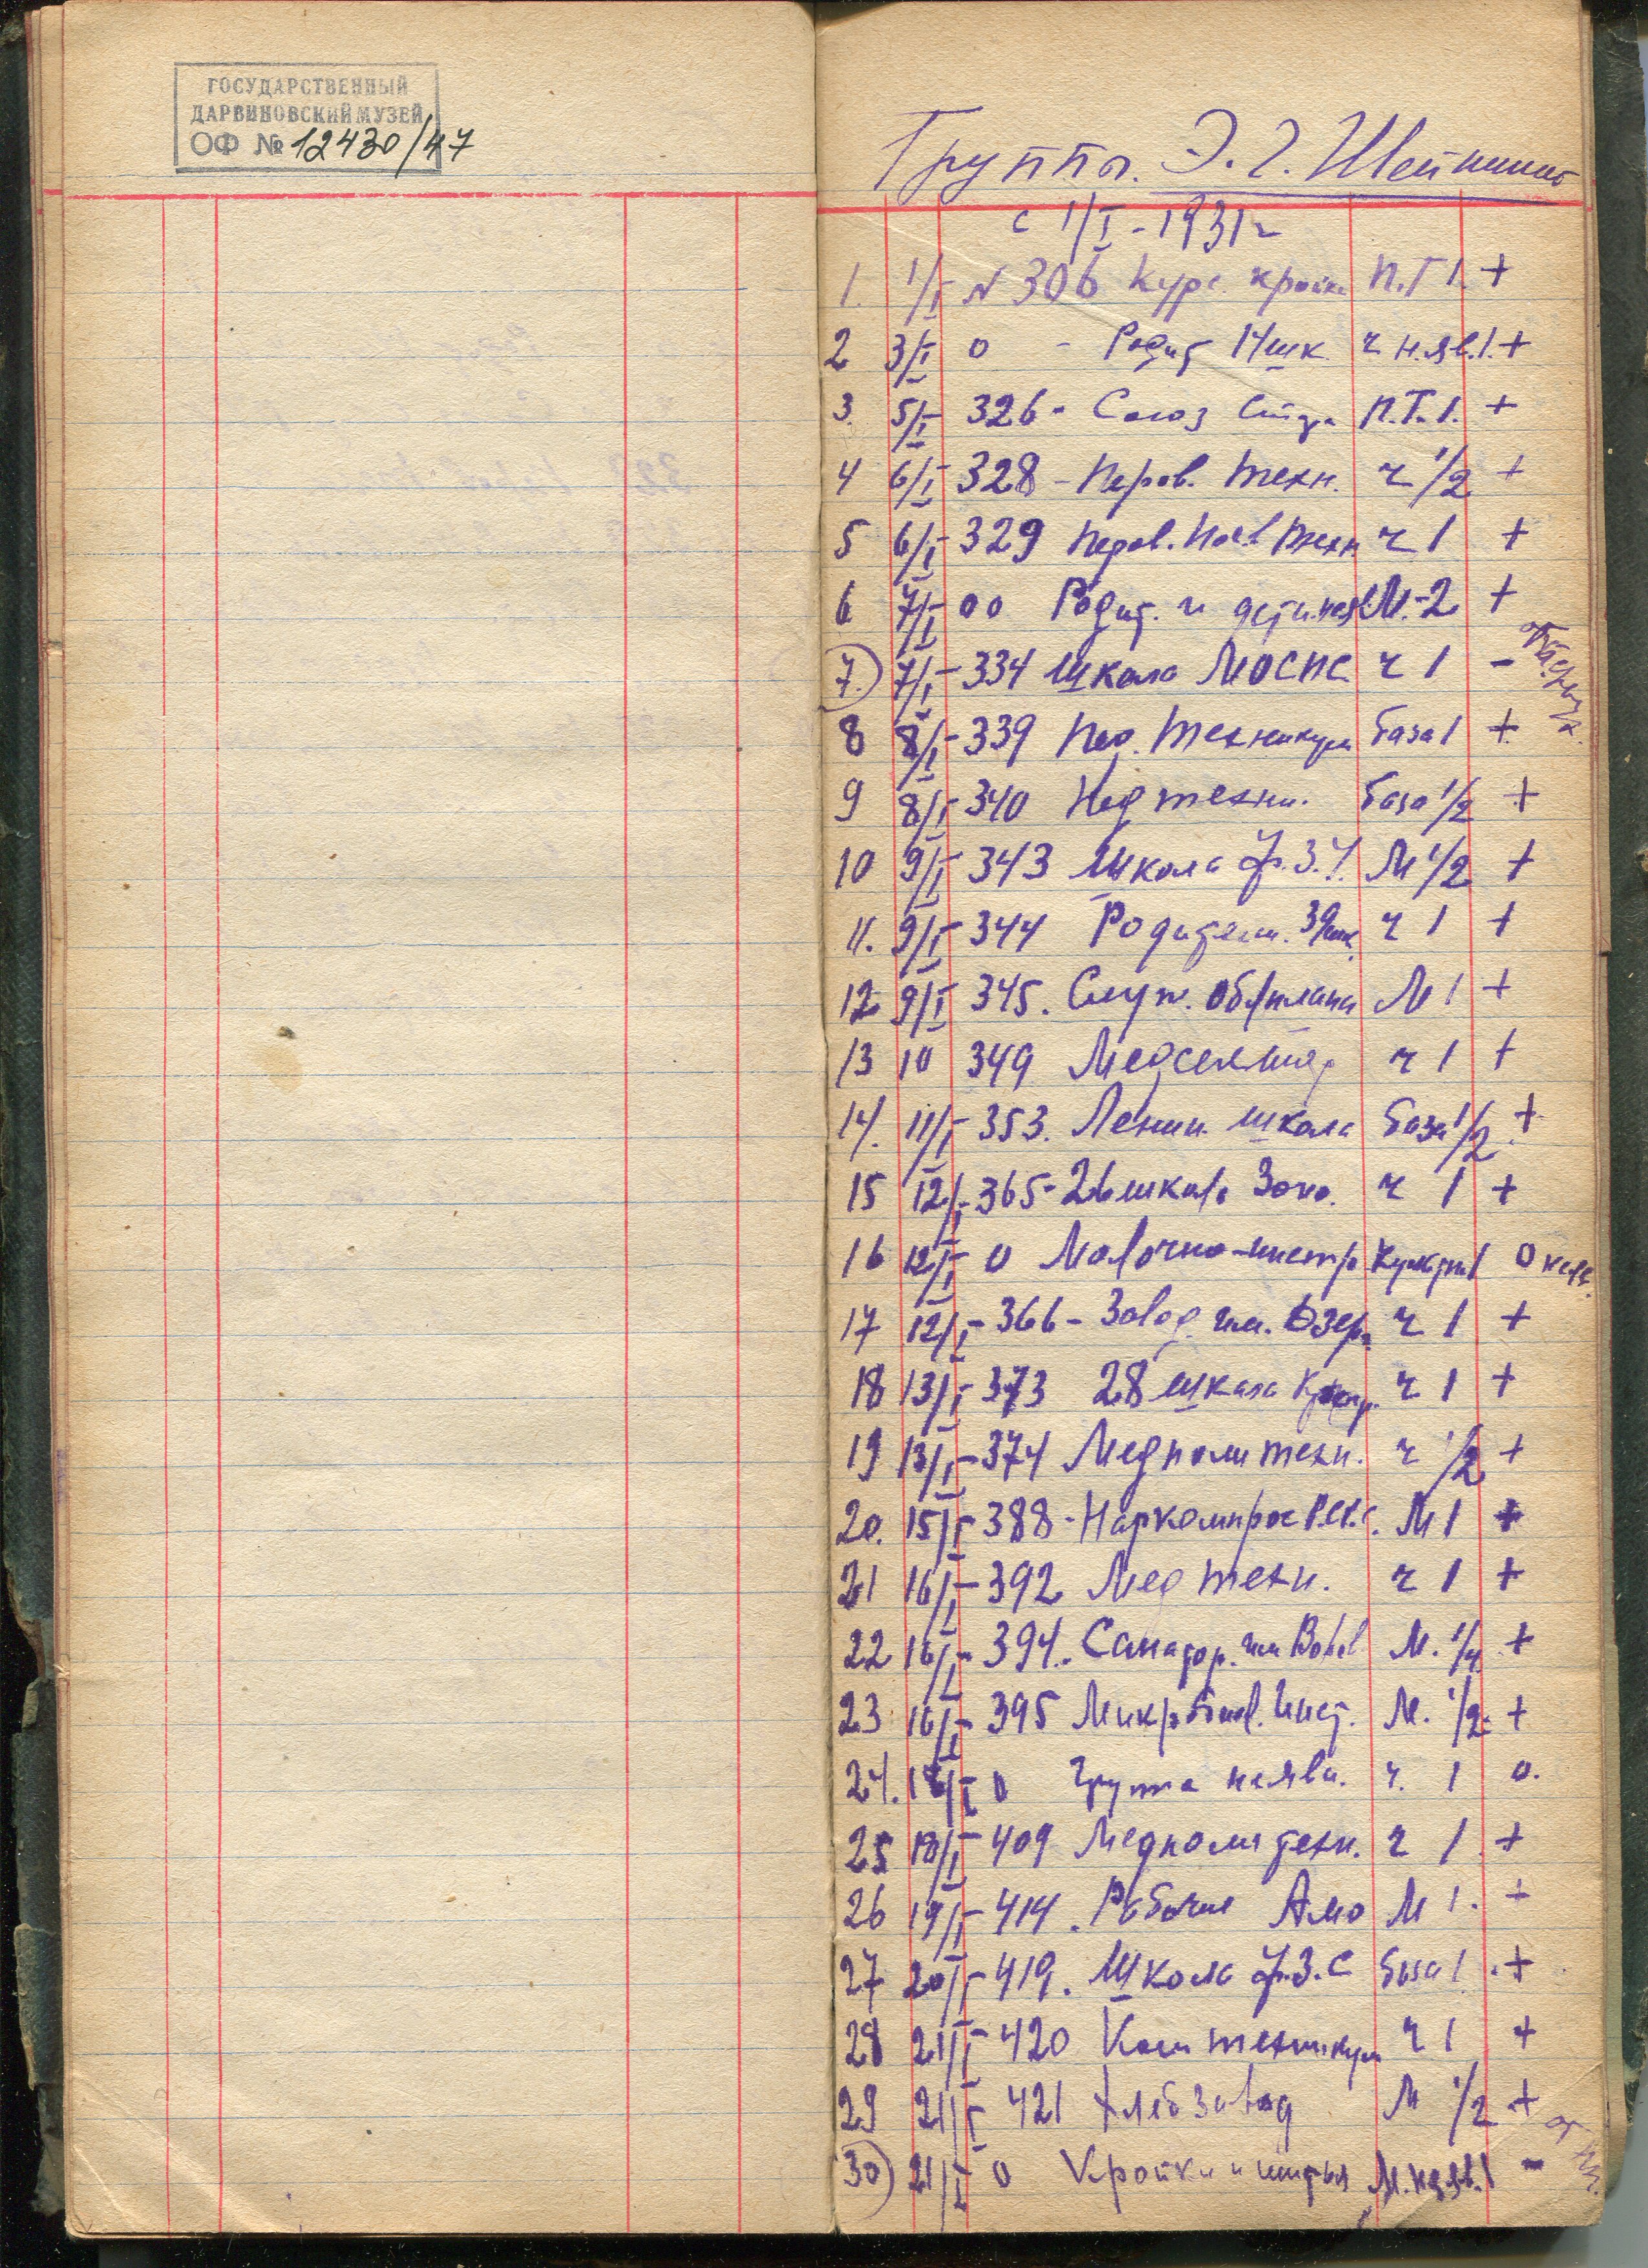 ГОСУДАРСТВЕННЫЙ
ДАРВИНОВСКИЙ МУЗЕЙ
ОФ № 12430/47
Группы. Э. Г.
с 1/I - 1931 г
1. 1/I N 306 Курс. кройки П.Т 1. +
2 3/I 0 - Родит 14 шк. ч н.яв. 1. +
3. 5/I 326 - Союз П.Т. 1. +
4 6/I 328 - Перов. техн. ч 1/2 +
5 6/I 329 Перов. техн ч 1 +
6 7/I 00 Родит. и дети М. - 2 +
7. 7/I 334 Школа МОСПС ч 1 -
8 8/I 339 Пед. Техникум база 1 +
9 8/I 340 Пед техни. база 1/2 +
10 9/I 343 Школа ф.З.У. М 1/2 +
11. 9/I 344 Родители. 39 шк. ч 1 +
12 9/I 345. Служ. М 1 +
13 10 349 Медсектор ч 1 +
14. 11/I 353. Ленин. школа база 1/2 +
15 12/I 365 - 26 школа Зоо. ч 1 +
16 12/I 0 Молочно-инстр 1 0
17 12/I 366 - Завод. им. ч 1 +
18 13/I 373 28 школа ч 1 +
19 13/I 374 Медполитехн. ч 1/2 +
20. 15/I 388 - Наркомпрос М 1 +
21 16/I 392 Мед техн. ч 1 +
22 16/I 394. Санатор. им М. 1/4 +
23 16/I 395 Микробиол. Инст. М. 1/2 +
24. 0 Группа неяви. ч. 1 0.
25 18/I 409 Медполитехн. ч 1 +
26 19/I 414. Рабочие Амо М 1. +
27 20/I 419. Школа ф.З.С база 1. +
28 21/I 420 Ком техникум ч 1 +
29 21/I 421 Хлебзавод М 1/2 +
30) 21/I 0 Кройки и шитья М. неяв. 1 -